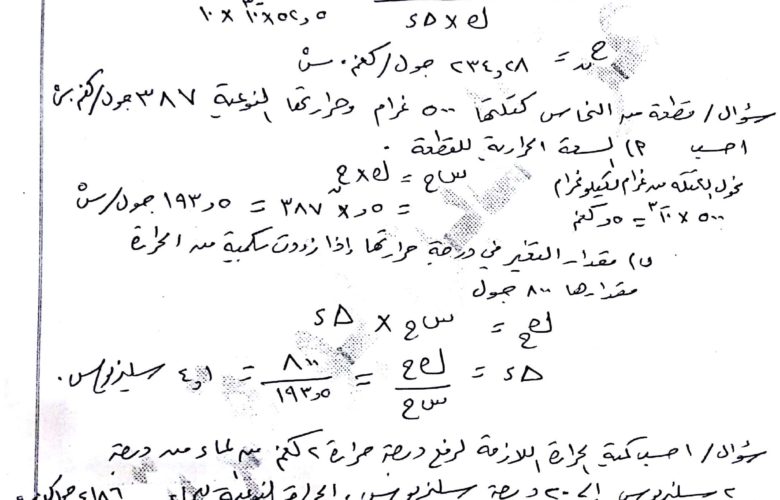 ٥ر٥٢ × ١٠^-٣ × ١٠
ك × Δد
ح ن = ٢٣٤,٢٨ جول/كغم.سْ
سؤال/ قطعة من النحاس كتلتها ٥٠٠ غرام وحرارتها النوعية ٣٨٧ جول/كغم.سْ
احسب ٩) السعة الحرارية للقطعة .
س ح = ك × ح ن
نحول الكتلة من غرام لكيلوغرام
= ٥ر × ٣٨٧ = ١٩٣,٥ جول/سْ
٥٠٠ × ١٠^-٣ = ٥ر كغم
ب) مقدار التغير في درجة حرارتها إذا زودت بكمية من الحرارة
مقدارها ٨٠٠ جول
ك ح = س ح × Δد
Δد = ك ح / س ح = ٨٠٠ / ١٩٣,٥ = ٤,١ سيلزيوس.
سؤال/ احسب كمية الحرارة اللازمة لرفع درجة حرارة ٢ كغم من الماء من درجة
سيلزيوس الى ٢٠ درجة سيلزيوس ، الحرارة النوعية للماء